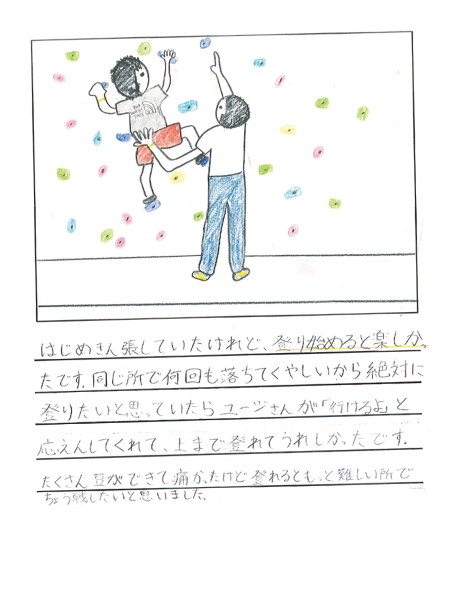 はじめきん張していたけれど、登り始めると楽しかっ
たです。同じ所で何回も落ちてくやしいから絶対に
登りたいと思っていたらユージさんが「行けるよ」と
応えんしてくれて、上まで登れてうれしかったです。
たくさん豆ができて痛かったけど登れるともっと難しい所で
ちょう戦したいと思いました。